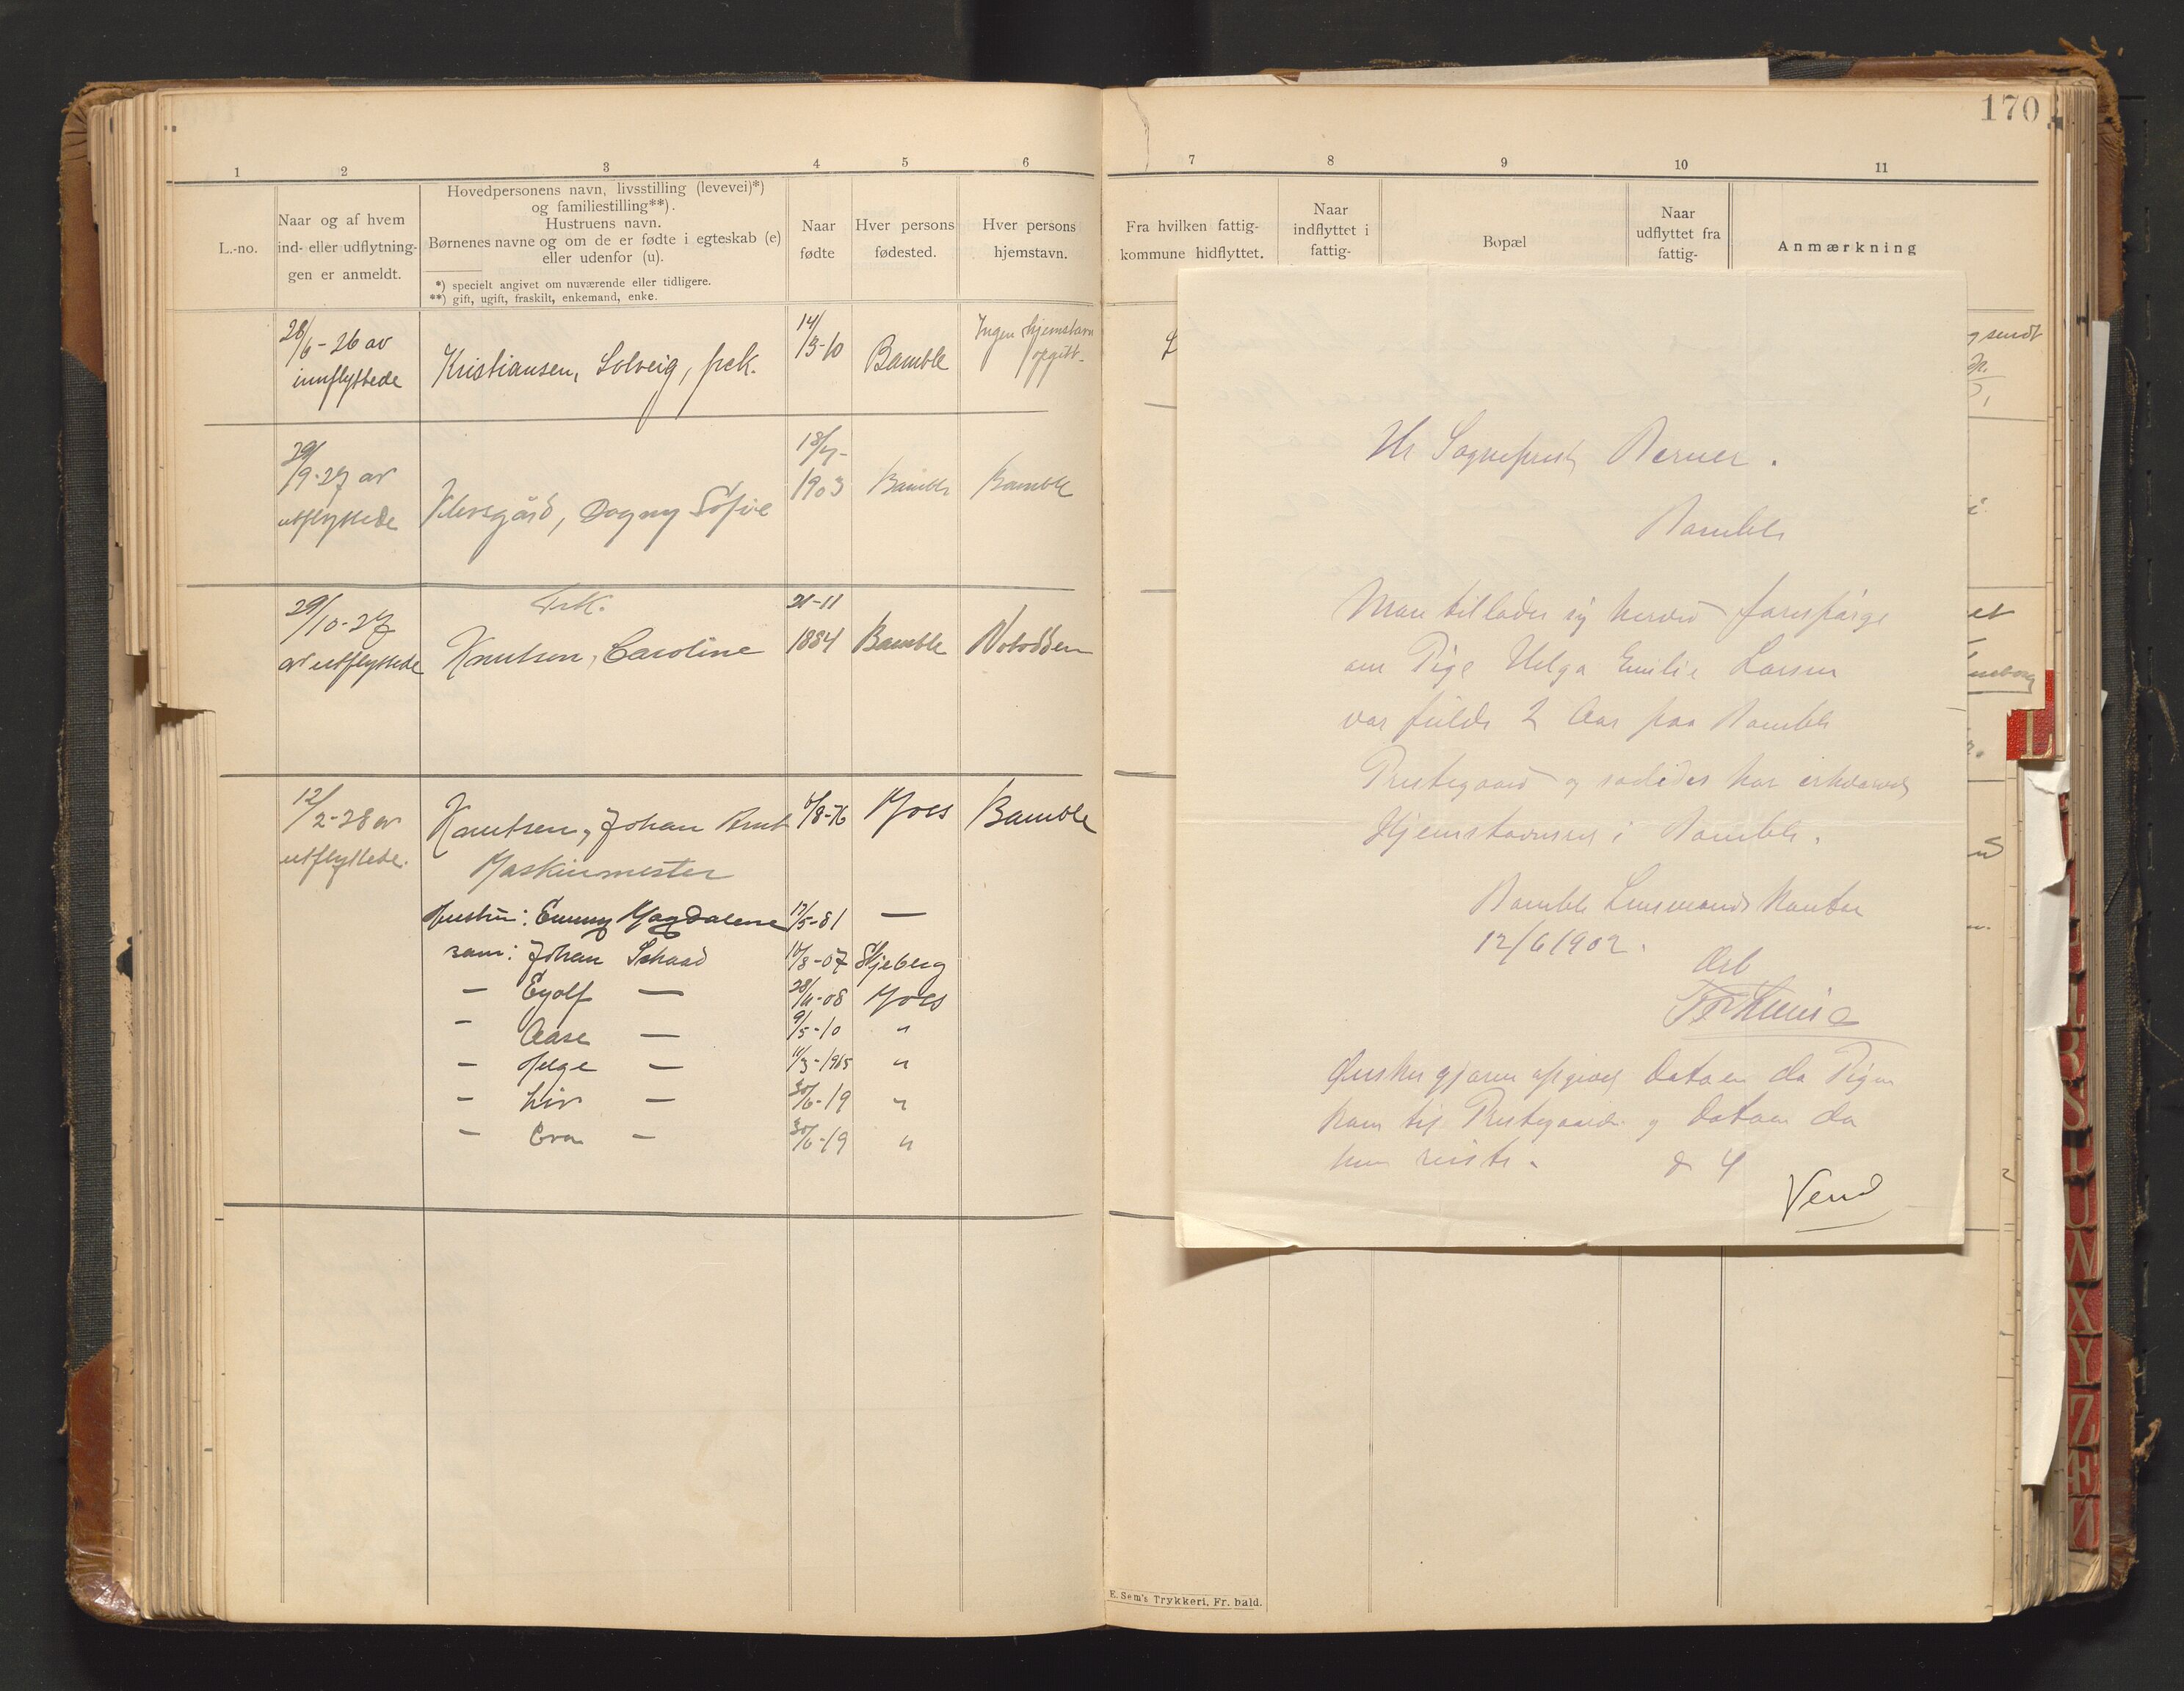 170
1
2
3
4
5
6
7
8
9
10
11
L.-no.
Naar og af hvem
ind- eller udflytnin-
gen er anmeldt.
Hovedpersonens navn, livsstilling (levevei)*)
og familiestilling**).
Hustruens navn.
Børnenes navne og om de er fødte i egteskab (e)
eller udenfor (u).
*) specielt angivet om nuværende eller tidligere.
**) gift, ugift, fraskilt, enkemand, enke.
Naar
fødte
Hver persons
fødested.
Hver persons
hjemstavn.
Fra hvilken fattig-
kommune hidflyttet.
Naar
indflyttet i
fattig-
Bopæl
Naar
udflyttet fra
fattig-
Anmærkning
28/6-26 av
innflyttede
Kristiansen, Solveig, frk.
14/3-10
Bamble
Ingen hjemstavn
opgitt-
29/9-27 av
utflyttede
Dagny Sofie
18/7-
1903
Bamble
Bamble
29/10-27
av utflyttede
Frk.
Knutsen, Caroline
21-11
1884
Bamble
Notodden
12/2-28 av
utflyttede.
Knutsen, Johan
Maskinmester
6/8-76
Moss
Bamble
Hustru: Emmy Magdalene
17/5-81
—
sam: Johan Schaad
10/8-07
Skjeberg
— Eyolf —
28/11-08
Moss
— Aase —
9/5-10
"
— Helge —
11/3-1915
"
— Liv —
30/6-19
"
— Eva —
30/6-19
"
Hr Sogneprest Berner.
Bamble
Man tillader sig herved forespørge
om Pige Helga Emilie Larsen
var fulde 2 Aar paa Bamble
Prestegaard og saaledes har erhvervet
Hjemstavnsret i Bamble.
Bamble Lensmands Kontor
12/6 1902.
Ærb
Ønskes gjerne opgivet Datoen da Pigen
kom til Prestegaarden og Datoen da
hun reiste.
Vend
E. Sem's Trykkeri, Fr. hald.
L
U
W
X
Y
Z
Æ